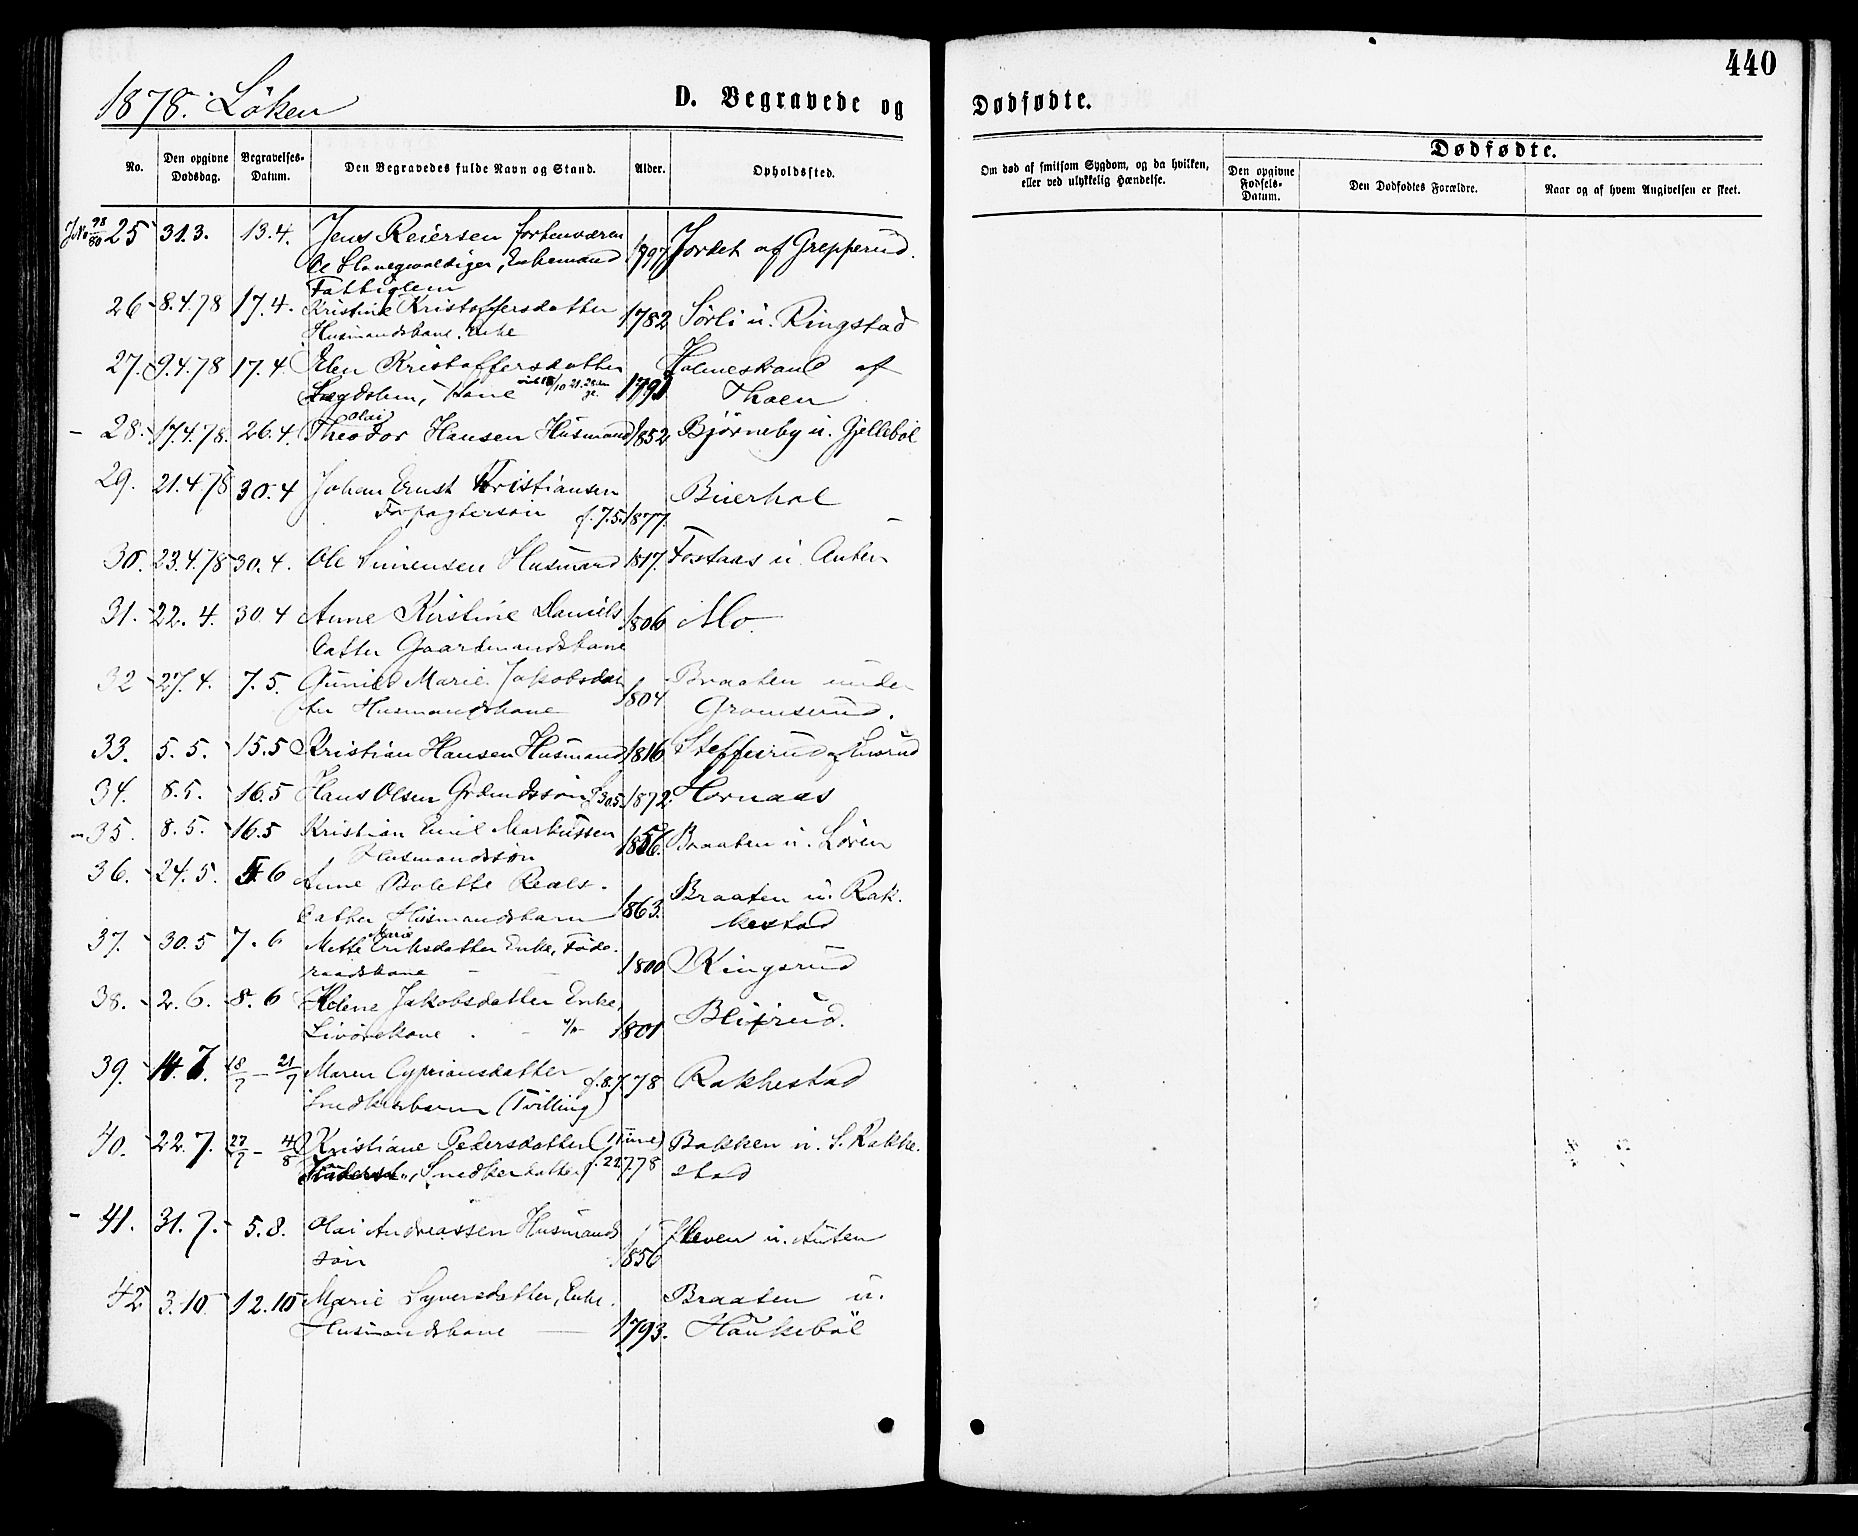 440
1878. Löken
D. Begravede og Dødfødte.
No. Den opgivne Dødsdag. Begravelses-Datum. Den Begravedes fulde Navn og Stand. Alder. Opholdssted.
Om død af smitsom Sygdom, og da hvilken, eller ved ulykkelig Hændelse.
Dødfødte.
Den opgivne Fødsels-Datum. Den Dødfødtes Forældre. Naar og af hvem Angivelsen er skeet.
25 31.3. 13.4. Jens Reiersen forhenværen
de Slavegevaldiger, Enkemand 1797 Jordet af Grepperud.
Fattiglem
26 8.4.78 17.4. Kristine Kristoffersdatter 1782 Sørli u. Ringstad
Husmandskone. Enke
27. 9.4.78 17.4. Elen Kristoffersdatter Holmeskaul af
Lægdslem, Kone 1791 Thoen
28. 17.4.78. 26.4. Theodor Olai Hansen Husmand 1852 Bjørneby u. Gjellebøl
29. 21.4.78 30.4 Johan Ernst Kristiansen Bierhol
Forpagtersøn f. 7.5.1877.
30. 23.4.78 30.4. Ole Simensen Husmand 1817. Fostaas u. Auten
31. 22.4. 30.4 Anne Kirstine Daniels 1806 Mo.
datter Gaardmandskone
32 27.4. 7.5. Gunild Marie Jakobsdat Braaten under
ter Husmandskone 1804 Gromsrud.
33. 5.5. 15.5 Kristian Hansen Husmand 1816 Steffisrud af Husrud
34. 8.5. 16.5 Hans Olsen Grdmdssøn f 30.5.1872. Hornaas
35. 8.5. 16.5 Kristian Emil Markussen 1856. Braaten u. Lören
Husmandssøn
36. 24.5. 5.6 Anne Bolette Reals- Braaten u. Rak-
datter Husmandsbarn 1863. kestad
37. 30.5 7.6 Mette Marie Eriksdatter Enke, Føde-
raadskone 1800 Kingsrud
38. 2.6. 8.6 Helene Jakobsdatter Enke, Blixrud.
Livørekone 1801
39. 14.7. 18/7 – 21/7 Maren Cypriansdatter f. 8.7.78 Rakkestad
Snedkerbarn (Tvilling)
40. 22.7. 27/7 – 4/8 Kristiane Pedersdatter (1 time) Bakken u. S. Rakke-
Snedkerdatter f. 22.7.78 stad
41. 31.7. 5.8. Olai Andreassen Husmands Kleven u. Auten
søn 1856
42 3.10 12.10 Marie Syversdatter, Enke. Braaten u.
Husmandskone 1793. Haukeböl